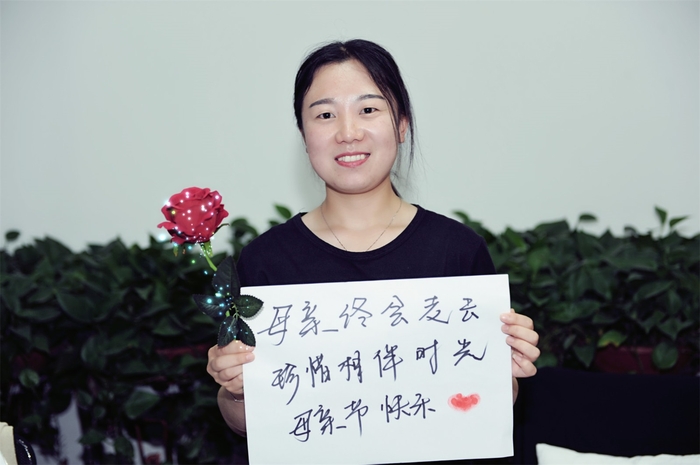 母亲终会老去
珍惜相伴时光
母亲节快乐